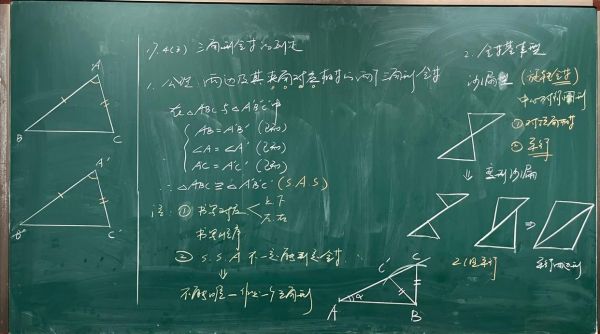 17.4(3) 三角形全等的判定
1. 公理 两边及其夹角对应相等的两个三角形全等
在△ABC与△A'B'C'中
AB=A'B' (已知)
∠A=∠A' (已知)
AC=A'C' (已知)
∴ △ABC≌△A'B'C' (S.A.S)
注: ① 书写对应 上下 左右
书写顺序
② S.S.A 不一定能判定全等
⇓
不能唯一作一个三角形
A
B
C
A'
B'
C'
2. 全等基本型
沙漏型 (旋转全等)
中心对称图形
① 对顶角相等
② 平行
⇓ 变型沙漏
⇒
平行四边形
A
B
C
C'
α